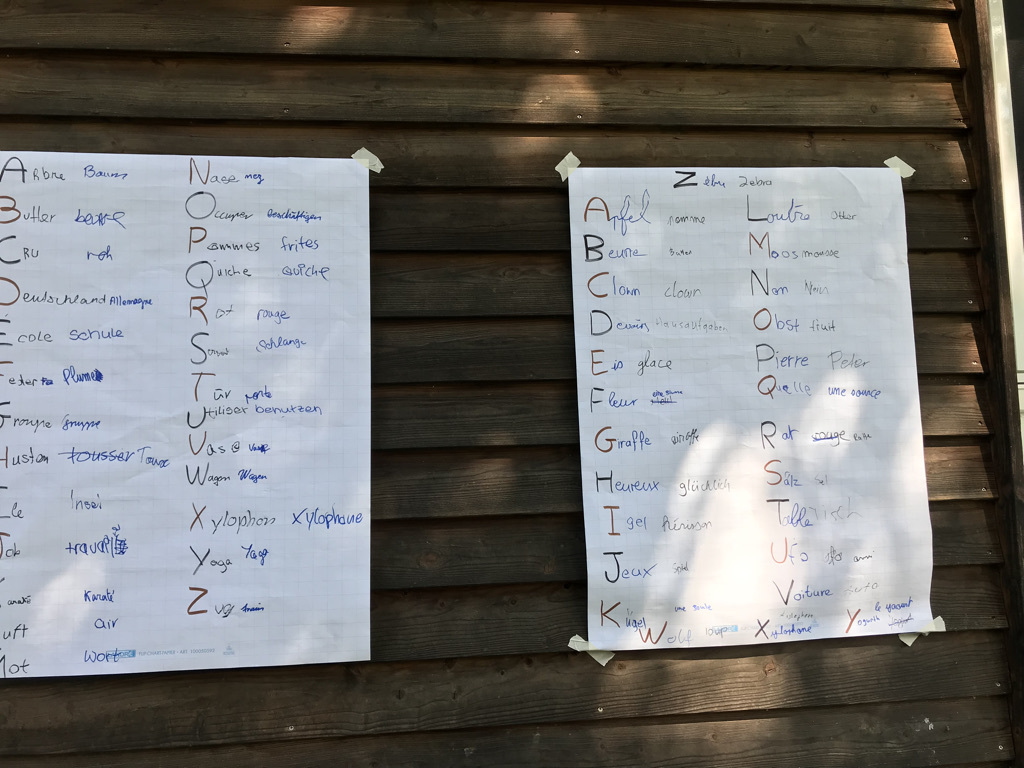 Arbre Baum
Butler beurre
CRU roh
Deutschland Allemagne
École schule
Feder Plume
Groupe gruppe
Husten tousser Toux
Ile Insel
Job travail
Karaté Karaté
Luft air
Mot wort
FLIPCHART PAPIER
Nase nez
Occuper beschäftigen
Pommes frites
Quiche Quiche
Rot rouge
S schlange
Tür porte
Utiliser benutzen
Vase vase
Wagon Wagen
Xylophon Xylophone
Yoga Yoga
Zug train
Zèbre Zebra
Apfel pomme
Beurre
Clown clown
Devoirs Hausaufgaben
Eis glace
Fleur
Giraffe giraffe
Heureux glücklich
Igel Hérisson
Jeux
Kugel
Wolf loup
Loutre Otter
Moos mousse
Non Nein
Obst fruit
Pierre Peter
Quelle une source
Rat rouge
Sälz sel
Table Tisch
Ufo
Voiture
Xylophone
Yogurth le yaourt